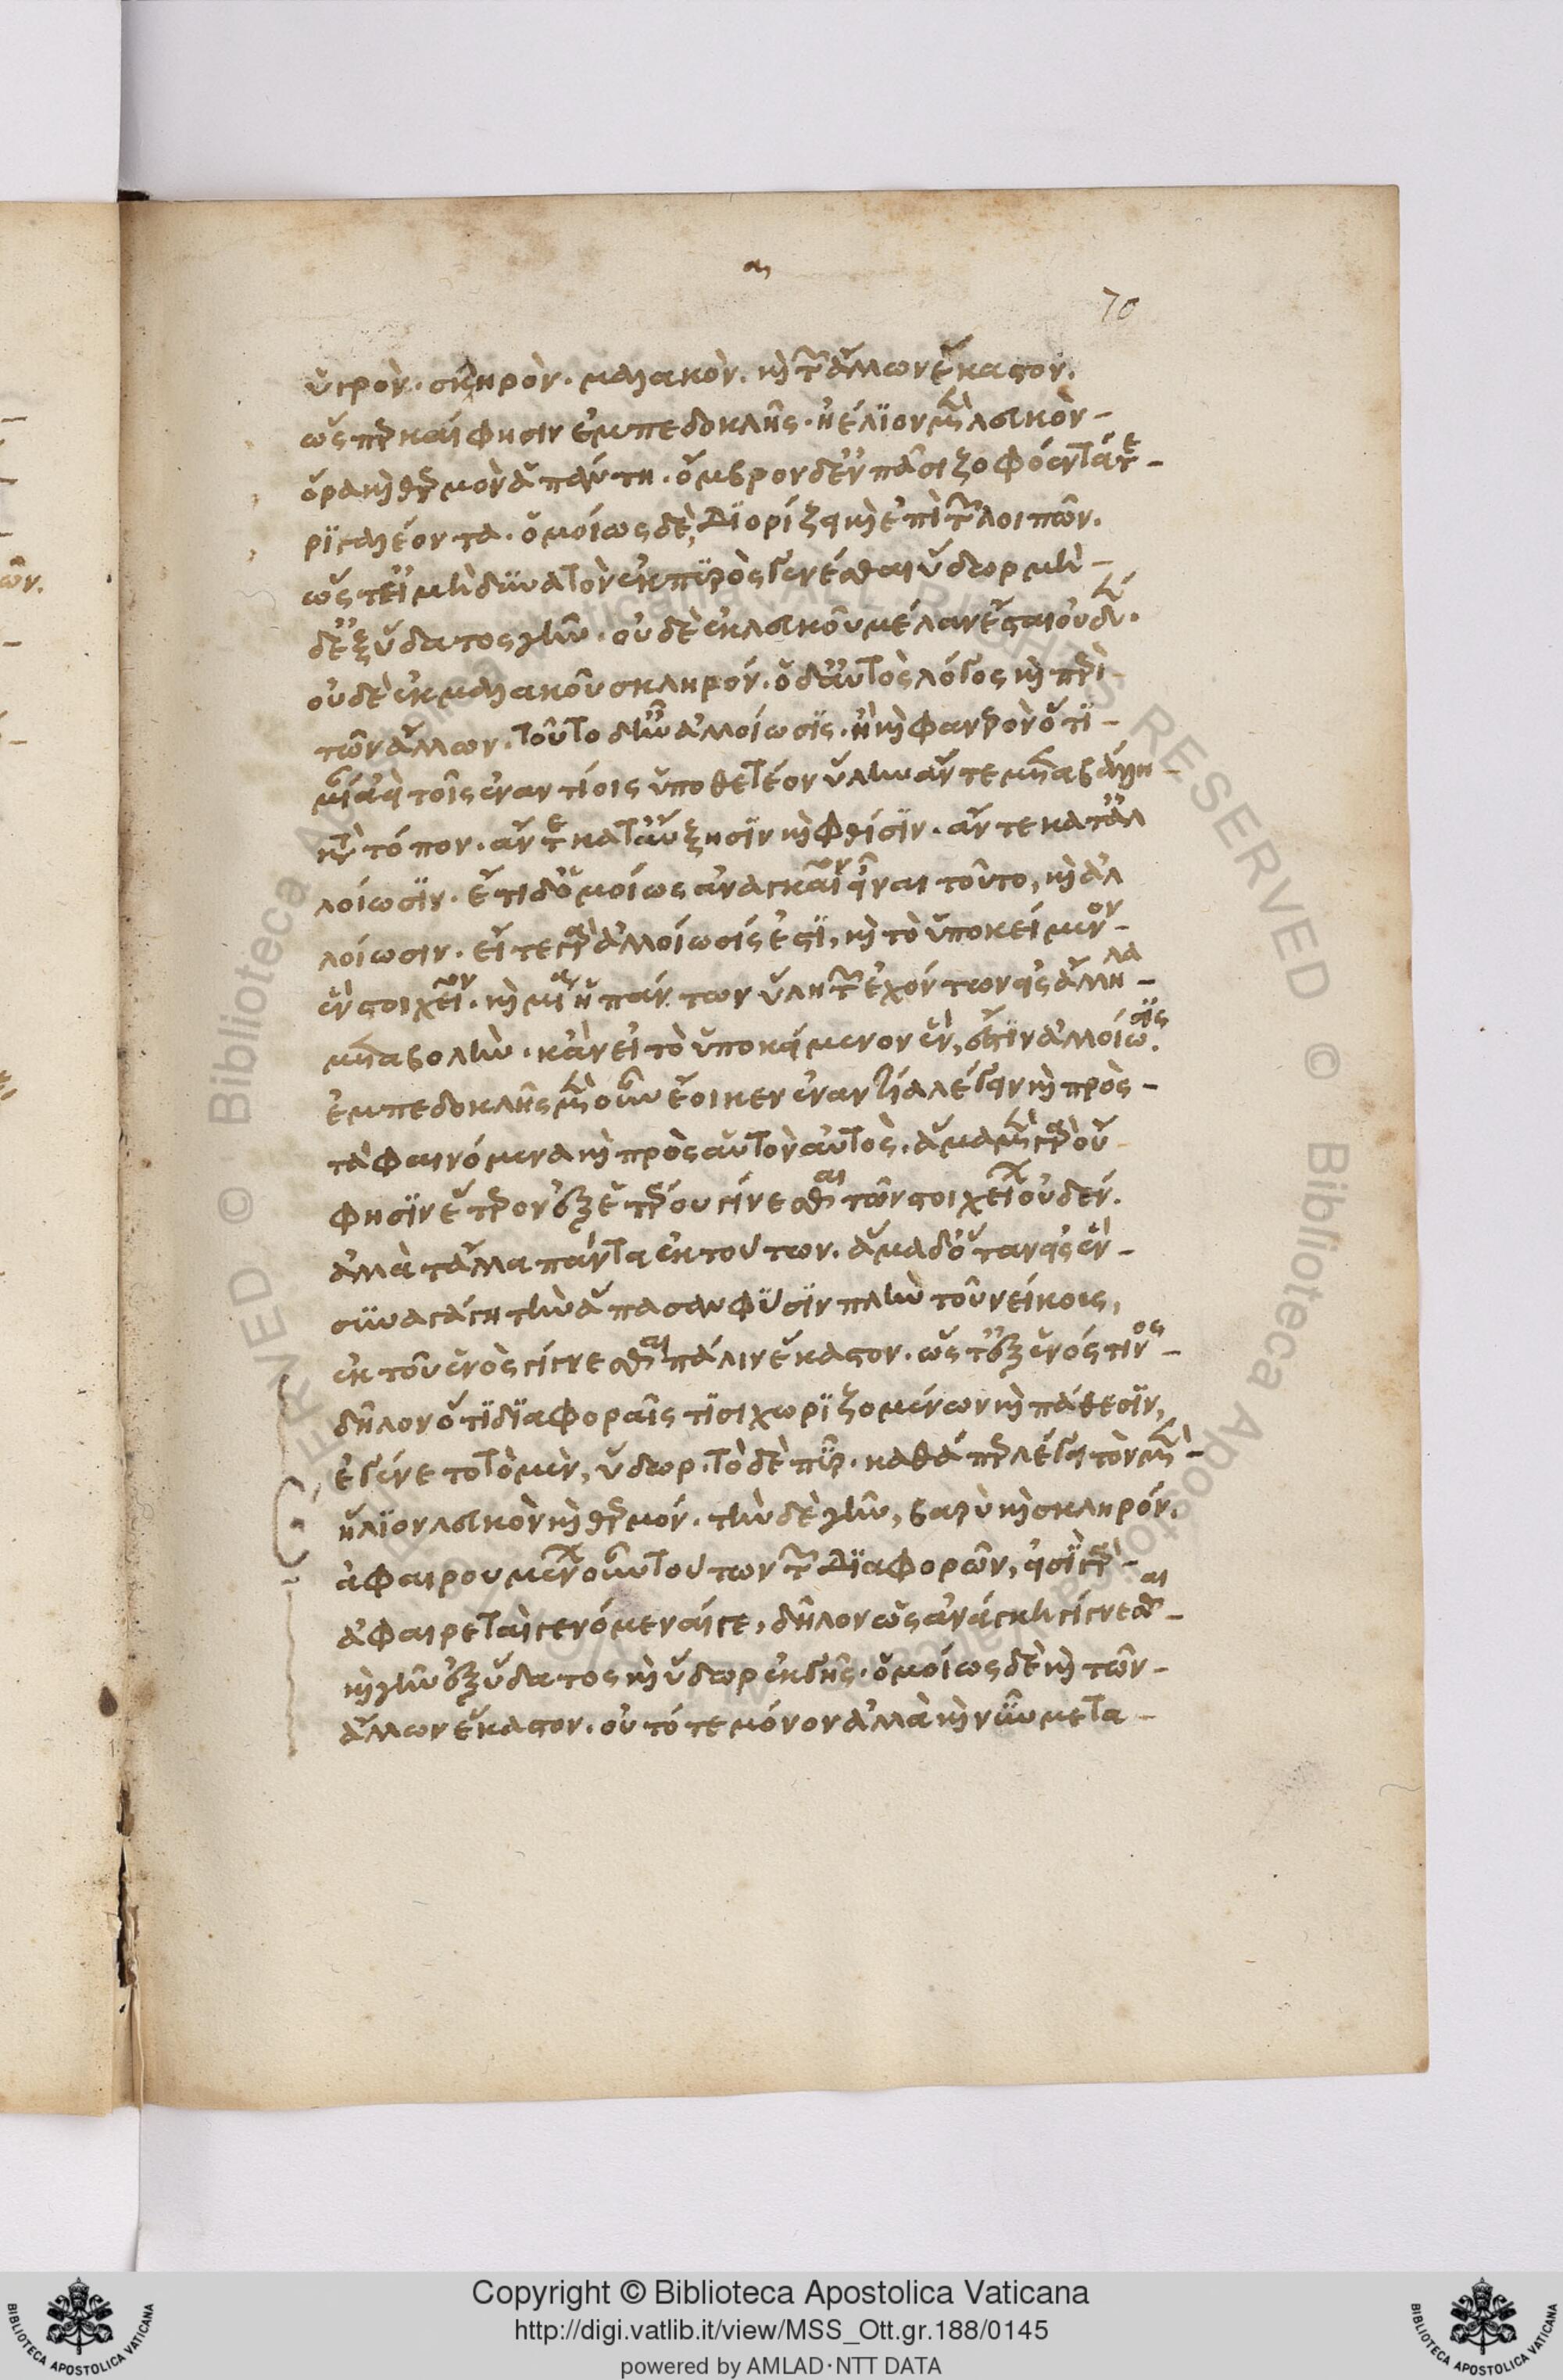 α,
70
ὑγρὸν· σκληρὸν· μαλακὸν· καὶ τῶν ἄλλων ἕκαστον.
ὥσπερ καί φησιν ἐμπεδοκλῆς· ἠέλιον μὲν λευκὸν
ὁρᾶν καὶ θερμὸν ἁπάντη· ὄμβρον δ' ἐν πᾶσι ζοφόεντά τε
ριγαλέον τα· ὁμοίως δὲ, διορίζει καὶ ἐπὶ τῶν λοιπῶν.
ὥστ' εἰ μὴ δυνατὸν ἐκ πυρὸς γενέσθαι ὕδωρ μὴ
δ' ἐξ ὕδατος γῆν· οὐδὲ ἐκ λευκοῦ μέλαν ἔσται οὐδέν·
οὐδὲ ἐκ μαλακοῦ σκληρόν. ὁ δ' αὐτὸς λόγος καὶ περὶ
τῶν ἄλλων. τοῦτο δ' ἦν ἀλλοίωσις. ἢ καὶ φανερὸν ὅτι
μίαν ἀεὶ τοῖς ἐναντίοις ὑποθετέον ὕλην ἄν τε μεταβάλλη
κατὰ τόπον. ἄν τε κατ' αὔξησιν καὶ φθίσιν. ἄν τε κατ' ἀλ
λοίωσιν. ἔτι δ' ὁμοίως ἀναγκαῖον εἶναι τοῦτο, καὶ ἀλ
λοίωσιν. εἴτε γὰρ ἀλλοίωσίς ἐστι, καὶ τὸ ὑποκείμενον
ἓν στοιχεῖον. καὶ μία ἡ πάντων ὕλη τῶν ἐχόντων εἰς ἄλληλα
μεταβολὴν. κἂν εἰ τὸ ὑποκείμενον ἓν, ἔστιν ἀλλοίωσις.
ἐμπεδοκλῆς μὲν οὖν ἔοικεν ἐναντία λέγειν καὶ πρὸς
τὰ φαινόμενα καὶ πρὸς αὑτὸν αὐτὸς. ἅμα μὲν γὰρ οὔ
φησιν ἕτερον ἐξ ἑτέρου γίνεσθαι τῶν στοιχείων οὐδέν.
ἀλλὰ τἄλλα πάντα ἐκ τούτων. ἅμα δ' ὅταν εἰς ἓν
συναγάγη τὴν ἅπασαν φύσιν πλὴν τοῦ νείκους,
ἐκ τοῦ ἑνὸς γίγνεσθαι πάλιν ἕκαστον. ὥστ' ἐξ ἑνός τινος
δῆλον ὅτι διαφοραῖς τισι χωριζομένων καὶ πάθεσιν,
ἐγένετο τὸ μὲν, ὕδωρ. τὸ δὲ πῦρ. καθάπερ λέγει τὸν μὲν
ἥλιον λευκὸν καὶ θερμόν. τὴν δὲ γῆν, βαρὺ καὶ σκληρόν.
ἀφαιρουμένων οὖν τούτων τῶν διαφορῶν, εἰσὶ γὰρ
ἀφαιρεταὶ γενόμεναί γε, δῆλον ὡς ἀνάγκη γίγνεσθαι
καὶ γῆν ἐξ ὕδατος καὶ ὕδωρ ἐκ γῆς. ὁμοίως δὲ καὶ τῶν
ἄλλων ἕκαστον. οὐ τότε μόνον ἀλλὰ καὶ νῦν μετα
Copyright © Biblioteca Apostolica Vaticana
http://digi.vatlib.it/view/MSS_Ott.gr.188/0145
powered by AMLAD·NTT DATA